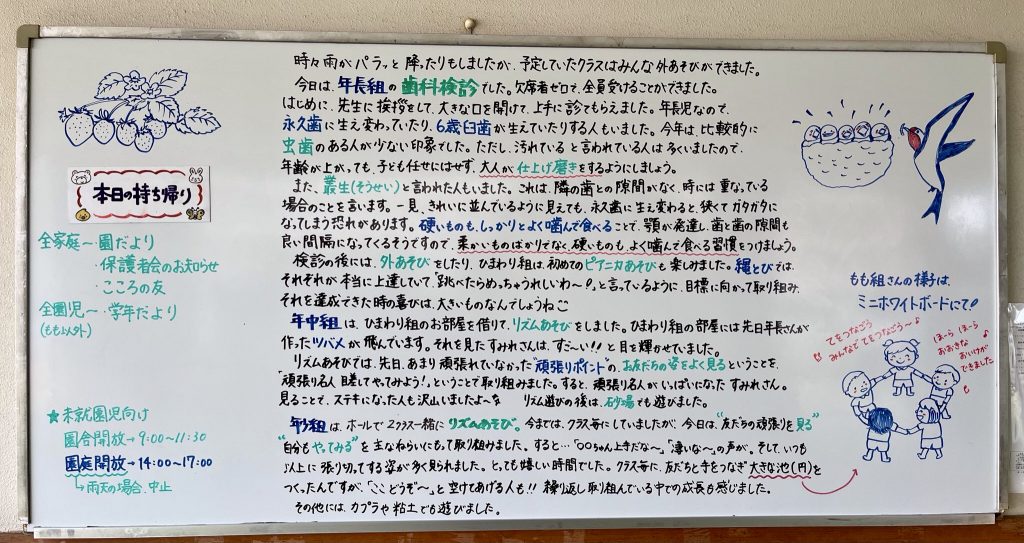 時々雨がパラッと降ったりもしましたが、予定していたクラスはみんな外あそびができました。
今日は、年長組の歯科検診でした。欠席者ゼロで、全員受けることができました。
はじめに、先生に挨拶をして、大きな口を開けて、上手に診てもらえました。年長児なので、
永久歯に生え変わっていたり、6歳臼歯が生えていたりする人もいました。今年は、比較的に
虫歯のある人が少ない印象でした。ただし、汚れていると言われている人は多くいましたので、
年齢が上がっても、子ども任せにはせず、大人が仕上げ磨きをするようにしましょう。
また、叢生(そうせい)と言われた人もいました。これは、隣の歯との隙間がなく、時には重なっている
場合のことを言います。一見、きれいに並んでいるように見えても、永久歯に生え変わると、狭くてガタガタに
なってしまう恐れがあります。硬いものも、しっかりとよく噛んで食べることで、顎が発達し、歯と歯の隙間も
良い間隔になってくるそうですので、柔かいものばかりでなく、硬いものも、よく噛んで食べる習慣をつけましょう。
検診の後には、外あそびをしたり、ひまわり組は、初めてのピアニカあそびも楽しみました。縄とびでは、
それぞれが本当に上達していて「跳べたらめっちゃうれしいわ〜!」と言っているように、目標に向かって取り組み、
それを達成できた時の喜びは、大きいものなんでしょうね
年中組は、ひまわり組のお部屋を借りて、リズムあそびをしました。ひまわり組の部屋には先日年長さんが
作ったツバメが飛んでいます。それを見たすみれさんは、すご〜い!!と目を輝かせていました。
リズムあそびでは、先日、あまり頑張れていなかった“頑張りポイント”の、お友だちの姿をよく見るということを、
「頑張り名人目差してやってみよう!」ということで取り組みました。すると、頑張り名人がいっぱいになったすみれさん。
見ることで、ステキになった人も沢山いましたよ〜 リズム遊びの後は、砂場でも遊びました。
年少組は、ホールで2クラス一緒にリズムあそび。今までは、クラス毎にしていましたが、今日は、“友だちの頑張りを見る”
“自分もやってみる”を主なねらいにもって取り組みました。すると…「○○ちゃん上手だな〜」「凄いな〜」の声が。そして、いつも
以上に張り切ってする姿が多く見られました。とっても嬉しい時間でした。クラス毎に、友だちと手をつなぎ“大きな池(円)を
つくったんですが、「ここどうぞ〜」と空けてあげる人も!! 繰り返し取り組んでいる中での成長も感じました。
その他には、カプラや粘土でも遊びました。
本日の持ち帰り
全家庭〜・園だより
・保護者会のお知らせ
・こころの友
全園児〜・学年だより
(もも以外)
★未就園児向け
園舎開放→9:00〜11:30
園庭開放→14:00〜17:00
↳雨天の場合、中止
もも組さんの様子は、
ミニホワイトボードにて!
てをつなごう
みんなで てをつなごう〜♪
ほ〜ら ほ〜ら
おおきな
おいけが
できました